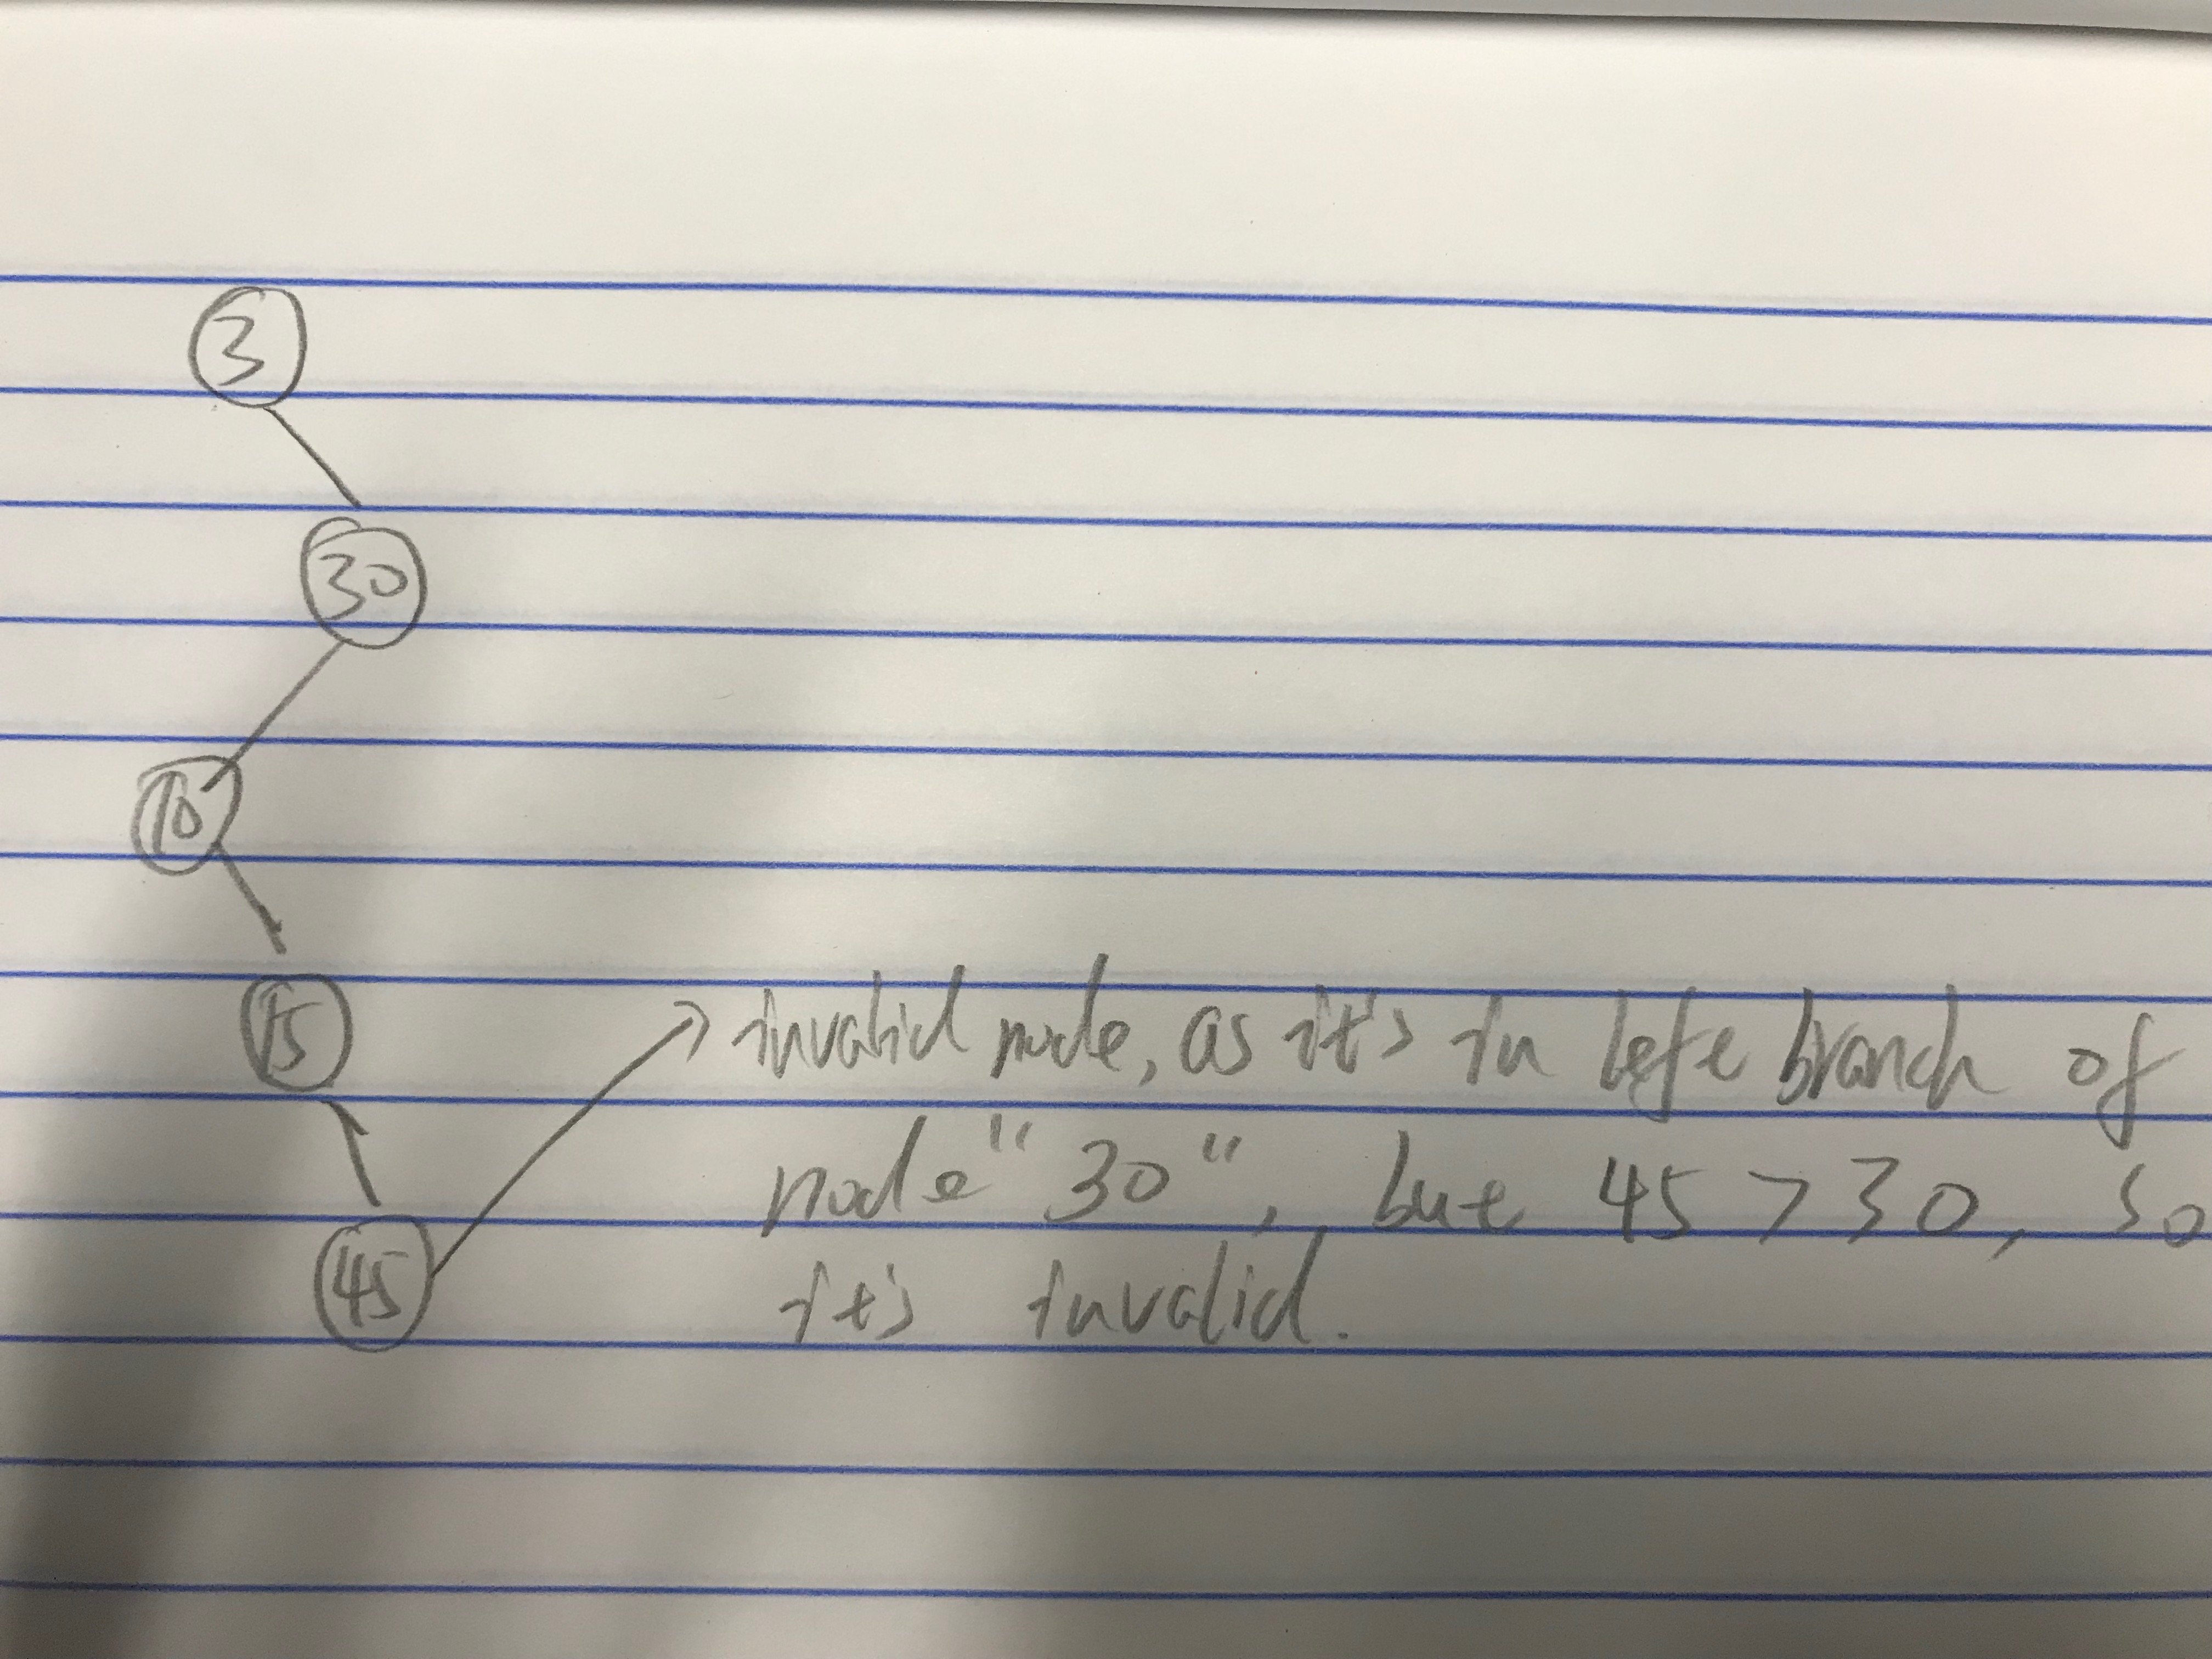 3
30
10
15
45
invalid node, as it's in left branch of
node "30", but 45 > 30, so
it's invalid.